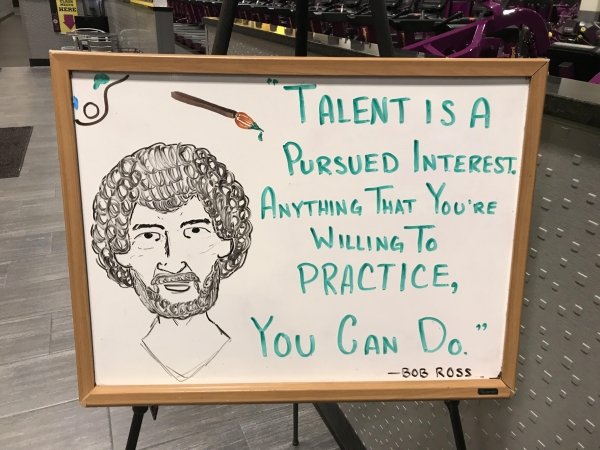 "TALENT IS A
PURSUED INTEREST.
ANYTHING THAT YOU'RE
WILLING TO
PRACTICE,
YOU CAN DO."
—BOB ROSS